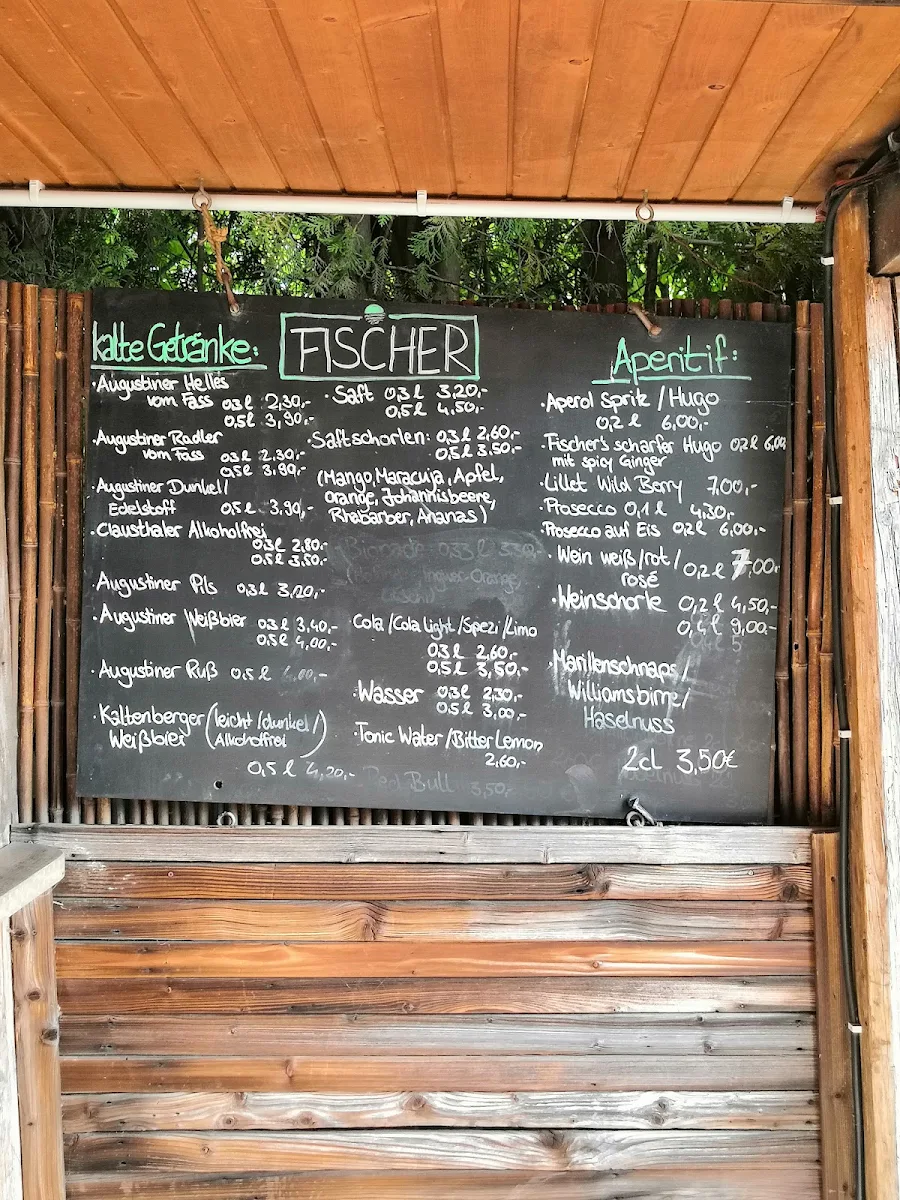 kalte Getränke:
· Augustiner Helles
vom Fass 0,3 l 2,30,-
0,5 l 3,90,-
· Augustiner Radler
vom Fass 0,3 l 2.30,-
0,5 l 3.90,-
· Augustiner Dunkel/
Edelstoff 0,5 l 3,90,-
· Clausthaler Alkoholfrei
0,3 l 2,80,-
0,5 l 3,50,-
· Augustiner Pils 0,3 l
· Augustiner Weißbier 0,3 l 3,40,-
0,5 l 4,00,-
· Augustiner Ruß 0,5 l 4,00,-
· Kaltenberger (leicht/dunkel/
Weißbier Alkoholfrei)
0,5 l 4,20,-
FISCHER
· Saft 0,3 l 3,20,-
0,5 l 4,50,-
· Saftschorlen: 0,3 l 2,60,-
0,5 l 3,50,-
(Mango, Maracuja, Apfel,
Orange, Johannisbeere,
Rhabarber, Ananas)
Bionade 0,33 l 3,30,-
Ingwer-Orange,
· Cola/Cola light/Spezi/Limo
0,3 l 2,60,-
0,5 l 3,50,-
· Wasser 0,3 l 2,30,-
0,5 l 3,00,-
· Tonic Water/Bitter Lemon
2,60,-
Red Bull 3,50,-
Aperitif:
· Aperol Spritz/Hugo
0,2 l 6,00,-
· Fischer's scharfer Hugo 0,2 l 6,00
mit spicy Ginger
· Lillet Wild Berry 7,00,-
· Prosecco 0,1 l 4,30,-
· Prosecco auf Eis 0,2 l 6,00,-
· Wein weiß/rot/
rosé 0,2 l 7,00,-
· Weinschorle 0,2 l 4,50,-
0,4 l 9,00,-
· Marillenschnaps/
Williamsbirne/
Haselnuss
2cl 3,50€